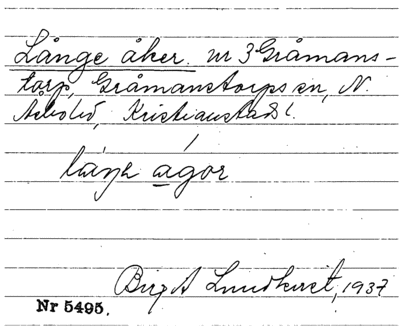 Långe åker. nr 3 Gråmans-
torp, Gråmanstorps sn, N.
Åsbo hd, Kristianstads l.
långa ågor
Birgit Lundkvist, 1937
Nr 5495.